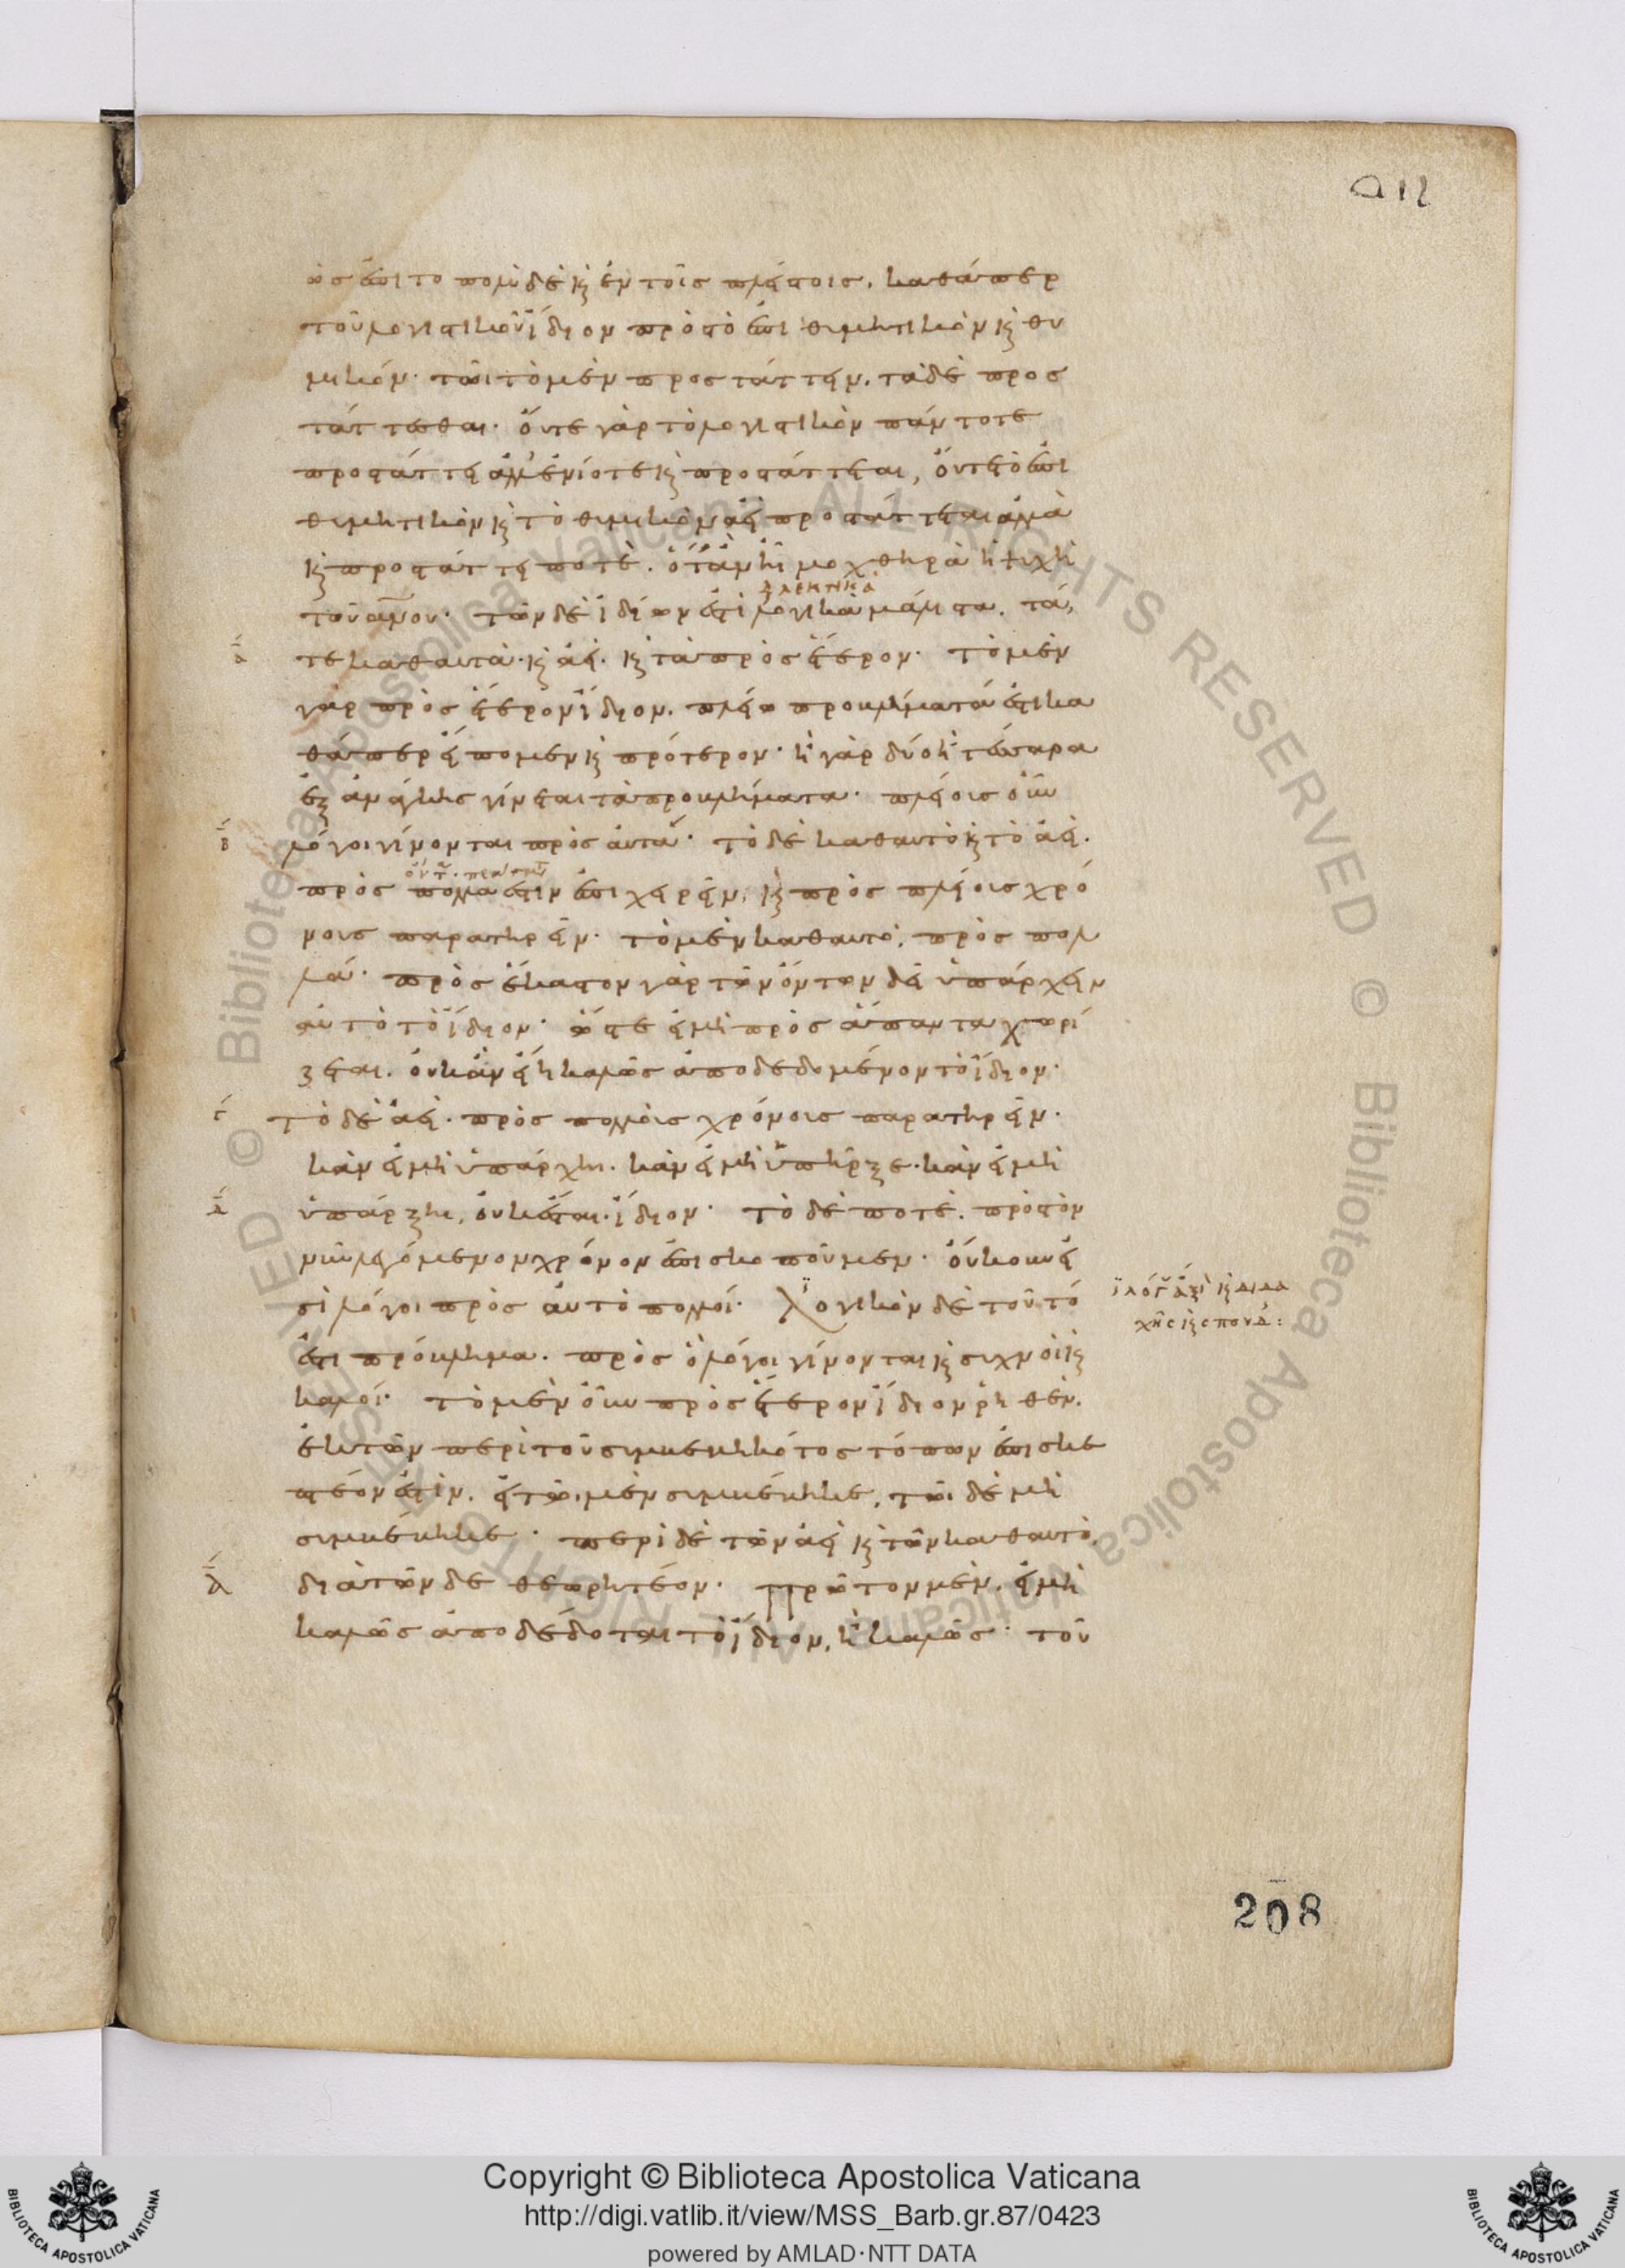 ὡς ἐπὶ το πολὺ δὲ κ ἐν τοῖς πλείστοις, καθάπερ
τοῦ λογιστικοῦ ἴδιον πρὸς τὸ ἐπιθυμητικὸν κ θυ
μικόν· τῶι τὸ μὲν προστάττειν. τὰ δὲ προσ
τάττεσθαι· οὔτε γὰρ τὸ λογιστικὸν πάντοτε
προστάττει ἀλλ' ἐνίοτε κ προστάττεται, οὔτε τὸ ἐπι
θυμητικὸν κ τὸ θυμικὸν ἀεὶ προστάττεται ἀλλὰ
κ προστάττει ποτὲ. ὅταν ἦι μοχθηρὰ ἡ ψυχὴ
τοῦ ανου· τῶν δὲ ἰδίων ἐστὶ λογικὰ μάλιστα. τά
τε καθαυτὰ· κ ἀεί. κ τὰ πρὸς ἕτερον· τὸ μὲν
γὰρ πρὸς ἕτερον ἴδιον. πλείω προβλήματά ἐστι κα
θάπερ εἴπομεν κ πρότερον· ἢ γὰρ δύο ἢ τέσσαρα
ἐξ ἀνάγκης γίνεται τὰ προβλήματα· πλείους οὖν
λόγοι γίνονται πρὸς αὐτά· τὸ δὲ καθαυτὸ κ τὸ ἀεί.
πρὸς πολλά ἐστιν ἐπιχειρεῖν, κ πρὸς πλείους χρό
νους παρατηρεῖν· τὸ μὲν καθαυτό, πρὸς πολ
λά· πρὸς ἕκαστον γὰρ τῶν ὄντων δεῖ ὑπάρχειν
αὐτὸ τὸ ἴδιον· ὥστε εἰ μὴ πρὸς ἅπαντα χωρί
ζεται. οὐκ ἂν εἴη καλῶς ἀποδεδομένον τὸ ἴδιον·
τὸ δὲ ἀεί. πρὸς πολλοὺς χρόνους παρατηρεῖν·
κἂν εἰ μὴ ὑπάρχηι. κἂν εἰ μὴ ὑπῆρξε. κἂν εἰ μὴ
ὑπάρξηι, οὐκ ἔσται. ἴδιον· τὸ δὲ ποτὲ. πρὸς τὸν
νῦν λεγόμενον χρόνον ἐπισκοποῦμεν· οὔκουν εἰ
σὶ λόγοι πρὸς αὐτὸ πολλοί· λογικὸν δὲ τοῦτό
ἐστι πρόβλημα. πρὸς ὃ λόγοι γίνονται κ συχνοὶ κ
καλοί· τὸ μὲν οὖν πρὸς ἕτερον ἴδιον ῥηθὲν.
ἐκ τῶν περὶ τοῦ συμβεβηκότος τόπων ἐπισκε
πτέον ἐστὶν. εἰ τῶι μὲν συμβέβηκε, τῶι δὲ μὴ
συμβέβηκε· περὶ δὲ τῶν ἀεὶ κ τῶν καθαυτὸ,
διὰ τῶν δε θεωρητέον· Πρῶτον μὲν. εἰ μὴ
καλῶς ἀποδέδοται τὸ ἴδιον, ἢ καλῶς· τοῦ
208
Copyright © Biblioteca Apostolica Vaticana
http://digi.vatlib.it/view/MSS_Barb.gr.87/0423
powered by AMLAD·NTT DATA